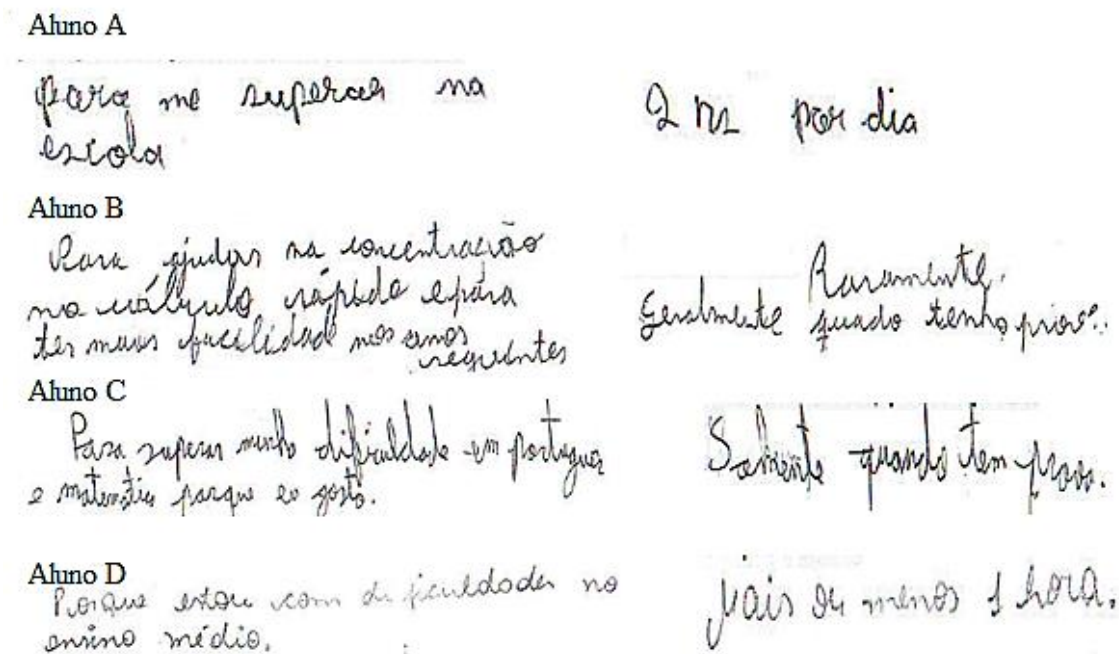 Aluno A
Para me superar na
escola
2 hs por dia
Aluno B
Para ajudar na concentração
no cálculo rápido e para
ter mais facilidade nos anos
seguintes
Raramente.
Geralmente quado tenho prova.
Aluno C
Para superar minha dificuldade em portugues
e matemática porque eu gosto.
Somente quando tem prova.
Aluno D
Porque estou com dificuldades no
ensino médio.
Mais ou menos 1 hora.